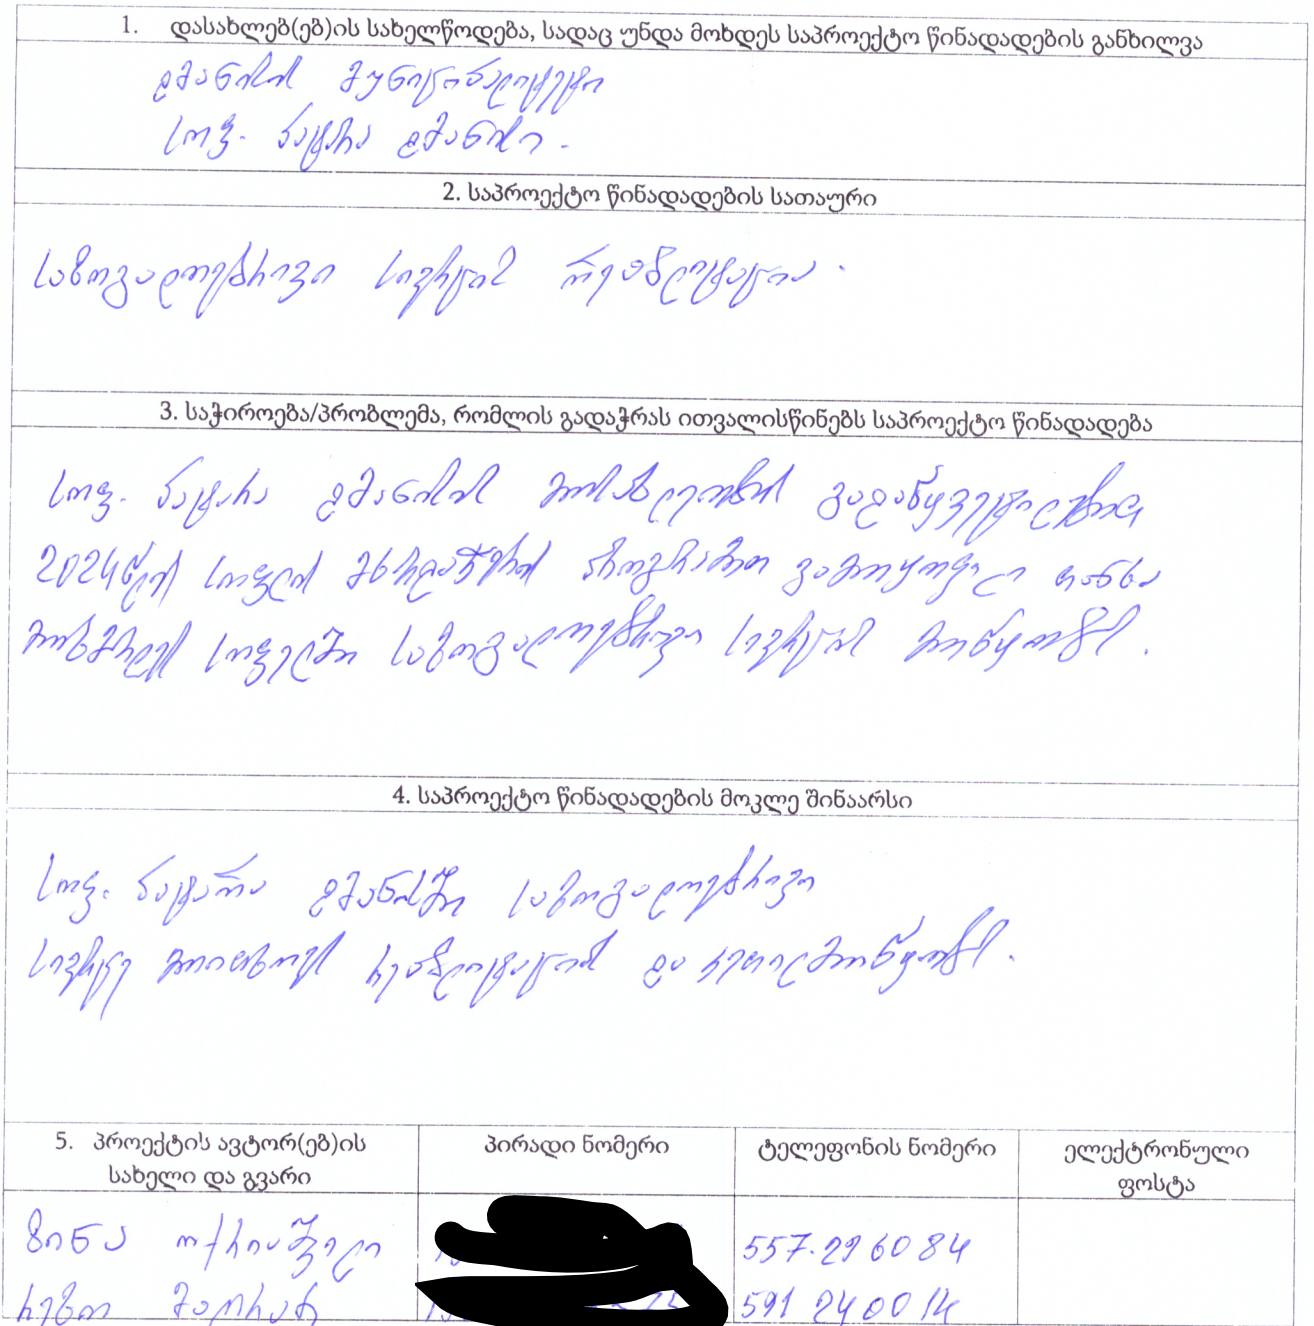 1. დასახლებ(ებ)ის სახელწოდება, სადაც უნდა მოხდეს საპროექტო წინადადების განხილვა
დმანისის მუნიციპალიტეტი
სოფ. პატარა დმანისი.
2. საპროექტო წინადადების სათაური
საზოგადოებრივი სივრცის რეაბლიტაცია.
3. საჭიროება/პრობლემა, რომლის გადაჭრას ითვალისწინებს საპროექტო წინადადება
სოფ. პატარა დმანისის მოსახლეობის გადაწყვეტილებით
2024 წლის სოფლის მხარდაჭერის პროგრამით გამოყოფილი თანხა
მოხმარდეს სოფელში საზოგადოებრივი სივრცის მოწყობას.
4. საპროექტო წინადადების მოკლე შინაარსი
სოფ. პატარა დმანისში საზოგადოებრივი
სივრცე მოითხოვს რეაბლიტაციას და კეთილმოწყობას.
5. პროექტის ავტორ(ებ)ის სახელი და გვარი პირადი ნომერი ტელეფონის ნომერი ელექტრონული ფოსტა
ზინა ოქრიაშვილი 557.29 60 84
რეზო 591 24 00 14